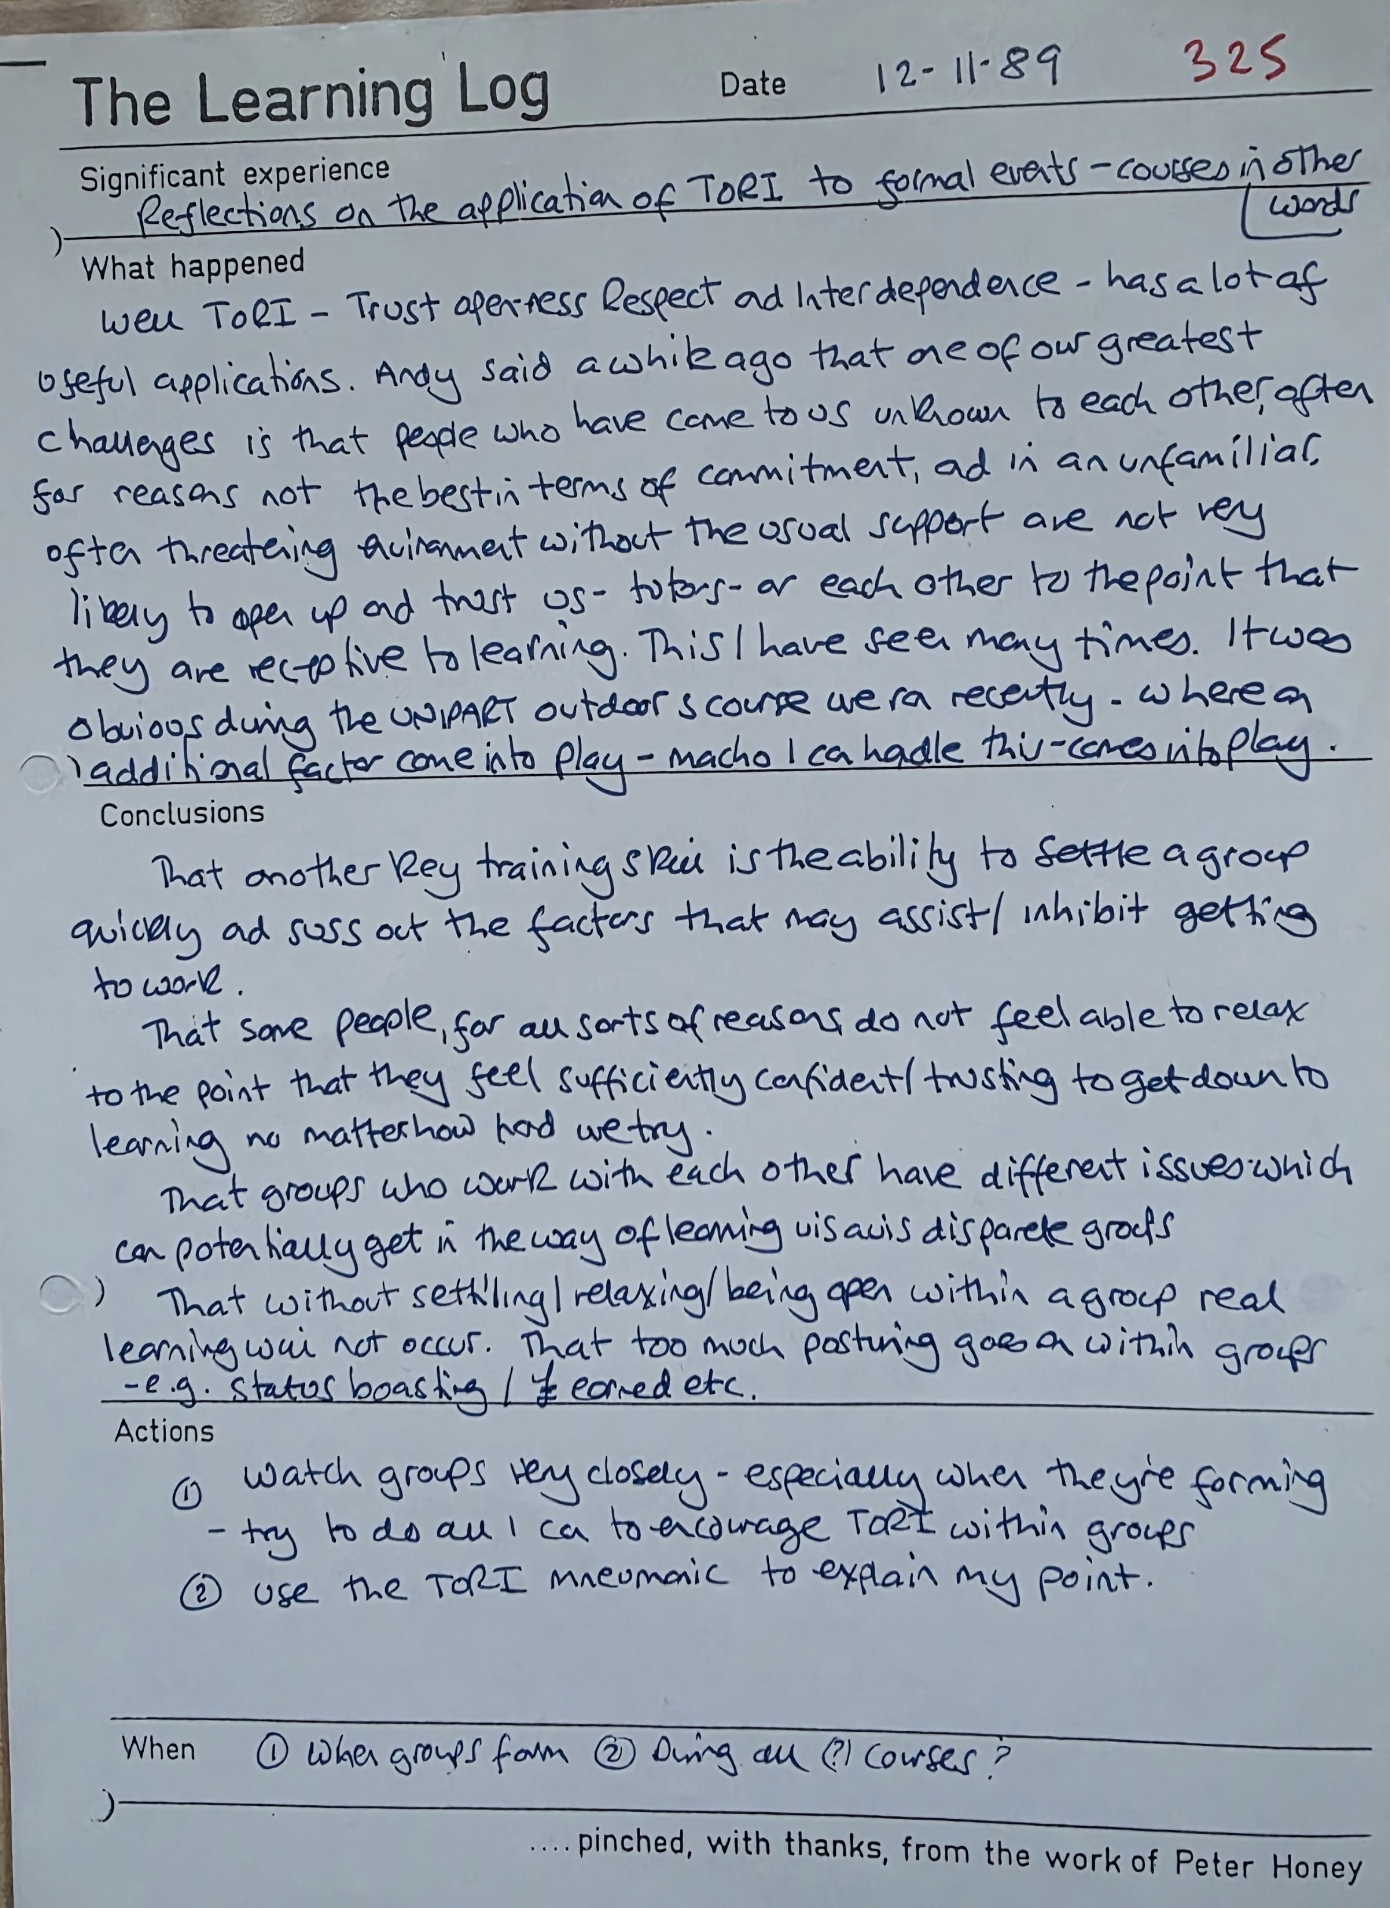 The Learning Log Date 12-11-89 325
Significant experience
Reflections on the application of TORI to formal events - courses in other
words
What happened
Well TORI - Trust openness Respect and Interdependence - has a lot of
useful applications. Andy said a while ago that one of our greatest
challenges is that people who have come to us unknown to each other, often
for reasons not the best in terms of commitment, and in an unfamiliar,
often threatening environment without the usual support are not very
likely to open up and trust us - tutors - or each other to the point that
they are receptive to learning. This I have seen many times. It was
obvious during the UNIPART outdoors course we ran recently - where an
additional factor come into play - macho I can handle this - comes into play.
Conclusions
That another key training skill is the ability to settle a group
quickly and suss out the factors that may assist/inhibit getting
to work.
That some people, for all sorts of reasons, do not feel able to relax
to the point that they feel sufficiently confident/trusting to get down to
learning no matter how hard we try.
That groups who work with each other have different issues which
can potentially get in the way of learning vis a vis disparate groups
That without settling/relaxing/being open within a group real
learning will not occur. That too much posturing goes on within groups
- e.g. status boasting / £ earned etc.
Actions
① Watch groups very closely - especially when they're forming
- try to do all I can to encourage TORI within groups
② Use the TORI mneumonic to explain my point.
When ① When groups form ② During all (?) courses?
.... pinched, with thanks, from the work of Peter Honey